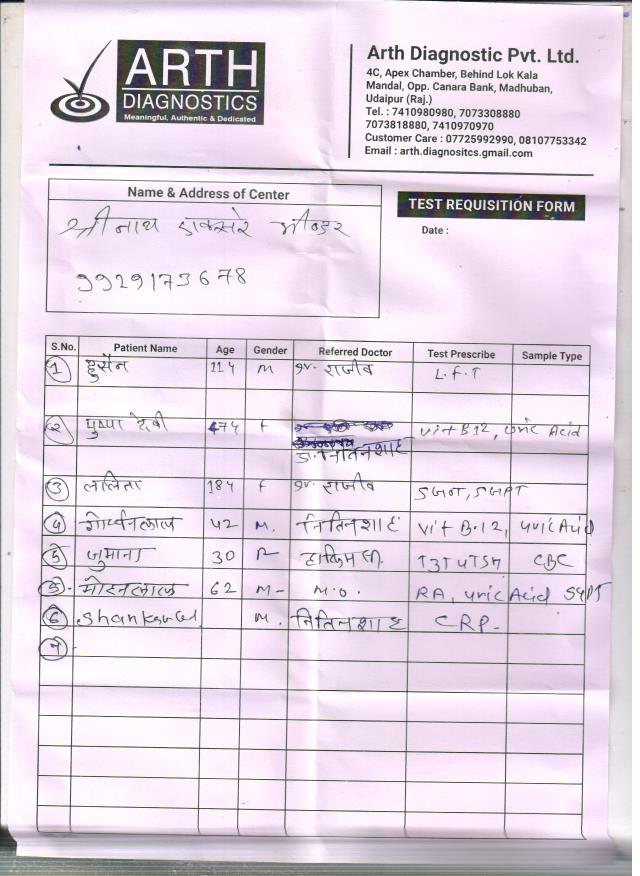 ARTH
DIAGNOSTICS
Meaningful, Authentic & Dedicated
Arth Diagnostic Pvt. Ltd.
4C, Apex Chamber, Behind Lok Kala
Mandal, Opp. Canara Bank, Madhuban,
Udaipur (Raj.)
Tel. : 7410980980, 7073308880
7073818880, 7410970970
Customer Care : 07725992990, 08107753342
Email : arth.diagnositcs.gmail.com
Name & Address of Center
TEST REQUISITION FORM
Date :
श्री नाथ
9929173678
S.No. Patient Name Age Gender Referred Doctor Test Prescribe Sample Type
1 हुसैन 11 M राजीव L.F.T
2 पुष्पा देवी F Vit B12, Uric Acid
डॉ. नितिन शाह
3 ललिता 18 F राजीव
4 42 M. नितिन शाह Vit B.12, Uric Acid
5 जुमाना 30 CBC
मोहनलाल 62 M- M.O. RA, Uric Acid SGPT
6 M. नितिन शाह CRP-